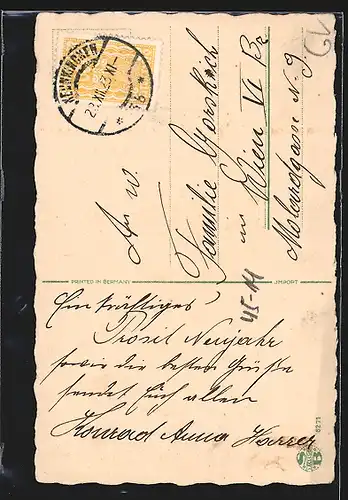 NEUNKIRCHEN
23.XII.23.XI-
An W.
Familie
in Wien VI Bz
Mollardgasse N. 9
PRINTED IN GERMANY
IMPORT
Ein kräftiges
Prosit Neujahr
sowie die besten Grüße
sendet Euch allen
Konrad Anna Harrer
6221